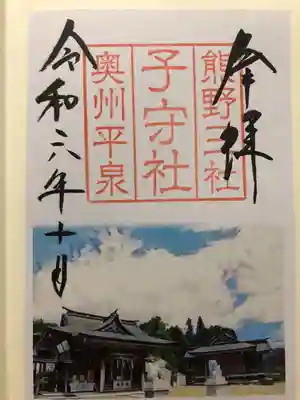 奉拝
熊野三社
子守社
奥州平泉
令和六年十月